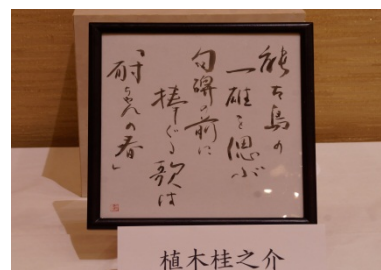 能古島の
一雄を偲ぶ
句碑の前に
捧ぐる歌は
「耐ちゃんの春」
植木桂之介